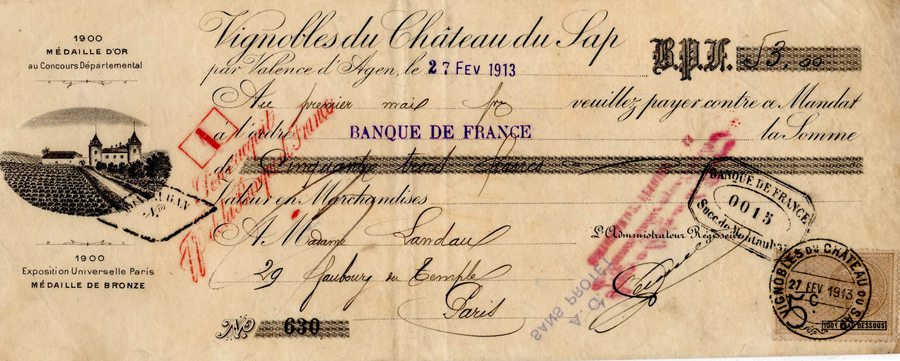 1900
MÉDAILLE D'OR
au Concours Départemental
Vignobles du Château du Sap
par Valence d'Agen, le 27 FEV 1913
B.P.F. 53,00
Au premier mai veuillez payer contre ce Mandat
à l'ordre BANQUE DE FRANCE la Somme
de Cinquante trois francs
Valeur en Marchandises
1
Pour acquit
de la Banque de France
MONTAUBAN
BANQUE DE FRANCE
0015
Succ. de Montauban
A Madame Landau
L'Administrateur Régisseur
29 Faubourg du Temple
Paris
1900
Exposition Universelle Paris
MÉDAILLE DE BRONZE
No 630
SANS PROTÊT
VIGNOBLES DU CHÂTEAU DU SAP
27 FEV 1913
100F ET AU DESSOUS